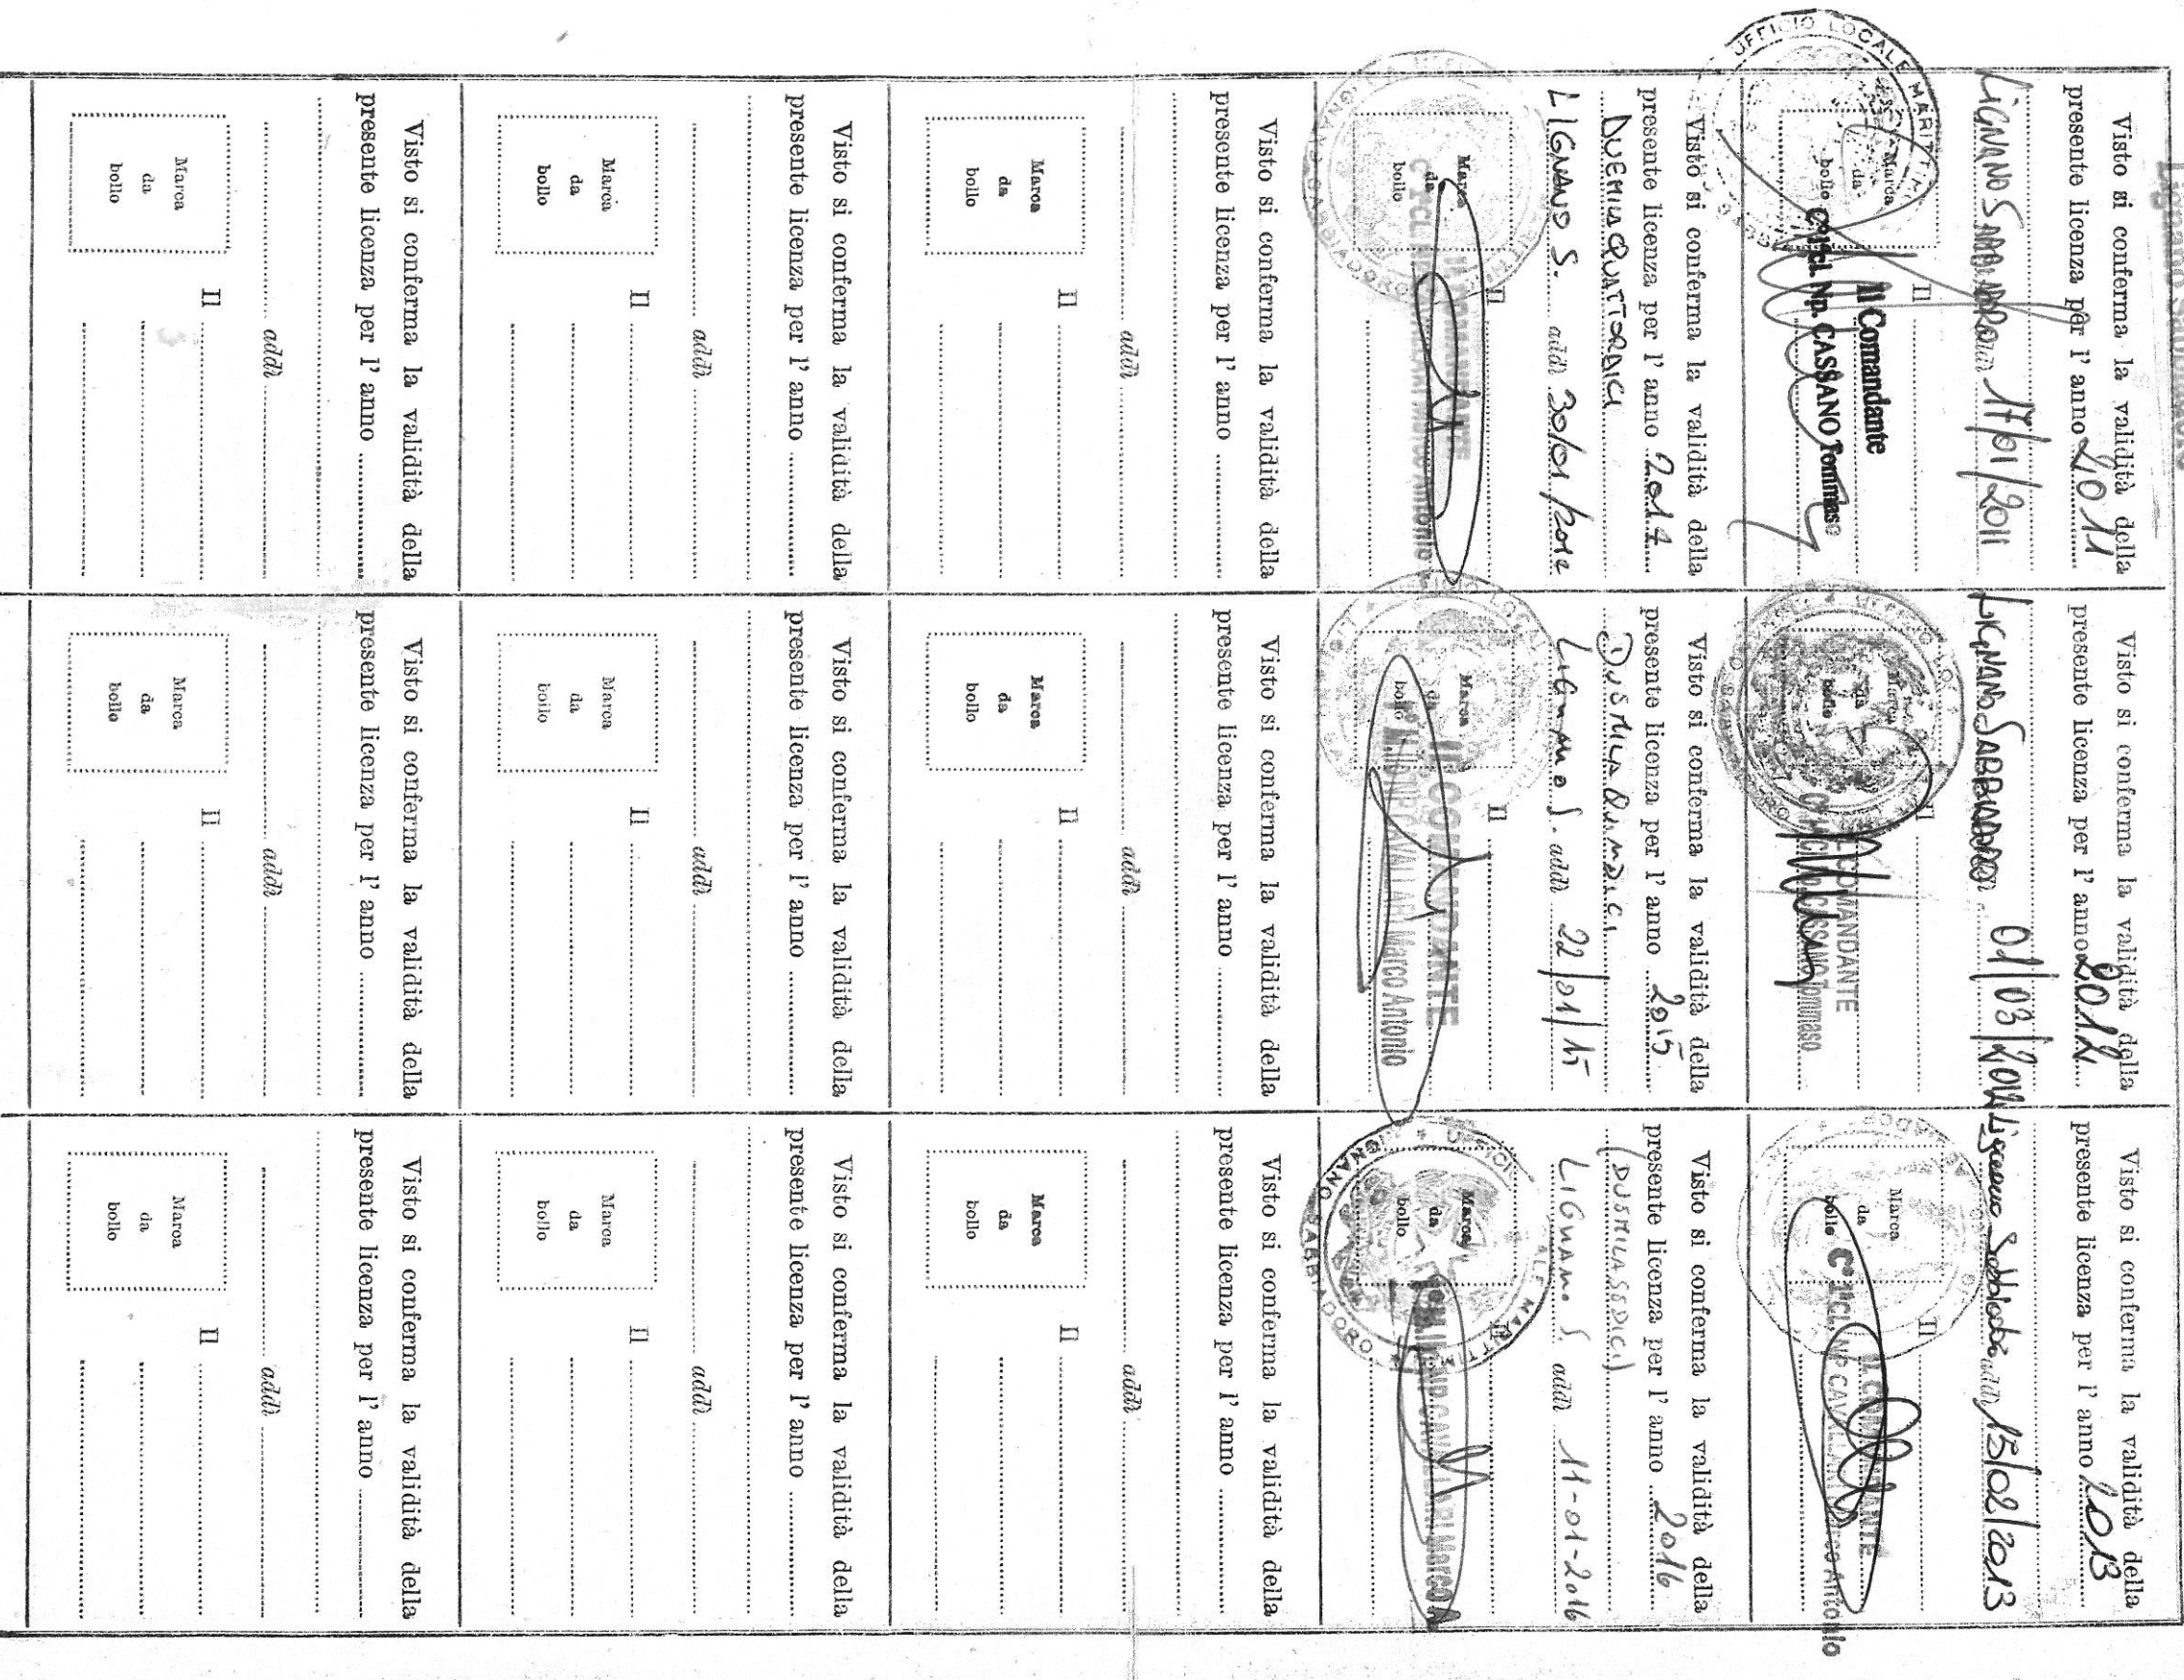 Visto si conferma la validità della
presente licenza per l' anno 2011
LIGNANO SABBIADORO addì 17/01/2011
Marca
da
bollo
Il
Il Comandante
Np. CASSANO Tommaso
UFFICIO LOCALE MARITTI
Visto si conferma la validità della
presente licenza per l' anno 2012
LIGNANO SABBIADORO 01/03/2012
Marca
da
bollo
Il
IL COMANDANTE
CASSANO Tommaso
Visto si conferma la validità della
presente licenza per l' anno 2013
Lignano Sabbiadoro addì 15/02/2013
Marca
da
bollo
Il
IL COMANDANTE
C° 1ªCL. NP CAVALLARI Marco Antonio
Visto si conferma la validità della
presente licenza per l' anno 2014
DUEMILAQUATTORDICI
LIGNANO S. addì 30/01/2014
Marca
da
bollo
Il
IL COMANDANTE
Marco Antonio
Visto si conferma la validità della
presente licenza per l' anno 2015
DUEMILAQUINDICI
LIGNANO S. addì 22/01/15
Marca
da
bollo
Il
IL COMANDANTE
CAVALLARI Marco Antonio
Visto si conferma la validità della
presente licenza per l' anno 2016
(DUEMILASEDICI)
LIGNANO S. addì 11-01-2016
Marca
da
bollo
Il
CAVALLARI Marco A
LIGNANO SABBIADORO
Visto si conferma la validità della
presente licenza per l' anno
addì
Marca
da
bollo
Il
Visto si conferma la validità della
presente licenza per l' anno
addì
Marca
da
bollo
Il
Visto si conferma la validità della
presente licenza per l' anno
addì
Marca
da
bollo
Il
Visto si conferma la validità della
presente licenza per l' anno
addì
Marca
da
bollo
Il
Visto si conferma la validità della
presente licenza per l' anno
addì
Marca
da
bollo
Il
Visto si conferma la validità della
presente licenza per l' anno
addì
Marca
da
bollo
Il
Visto si conferma la validità della
presente licenza per l' anno
addì
Marca
da
bollo
Il
Visto si conferma la validità della
presente licenza per l' anno
addì
Marca
da
bollo
Il
Visto si conferma la validità della
presente licenza per l' anno
addì
Marca
da
bollo
Il